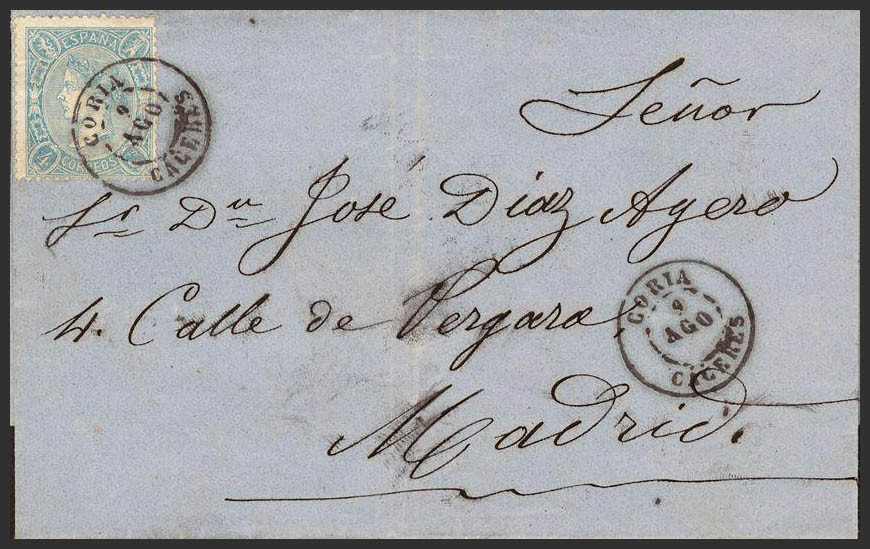 ESPAÑA
4 4
CORREOS
CORIA
9
AGO
CACERES
Señor
Sr. Dn José Díaz Agero
4. Calle de Vergara,
CORIA
9
AGO
CACERES
Madrid.